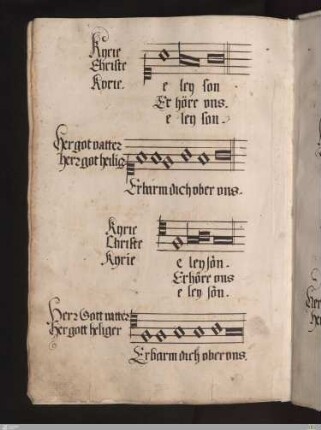 Kyrie
Christe
Kyrie.
e ley son
Er höre vns.
e ley son.
Her got vatter
Herr got heilig
Erbarm dich ober vns.
Kyrie
Christe
Kyrie
e ley sön.
Erhöre vns
e ley sön.
Herr Gott vatter
Her gott heliger
Erbarm dich ober vns.